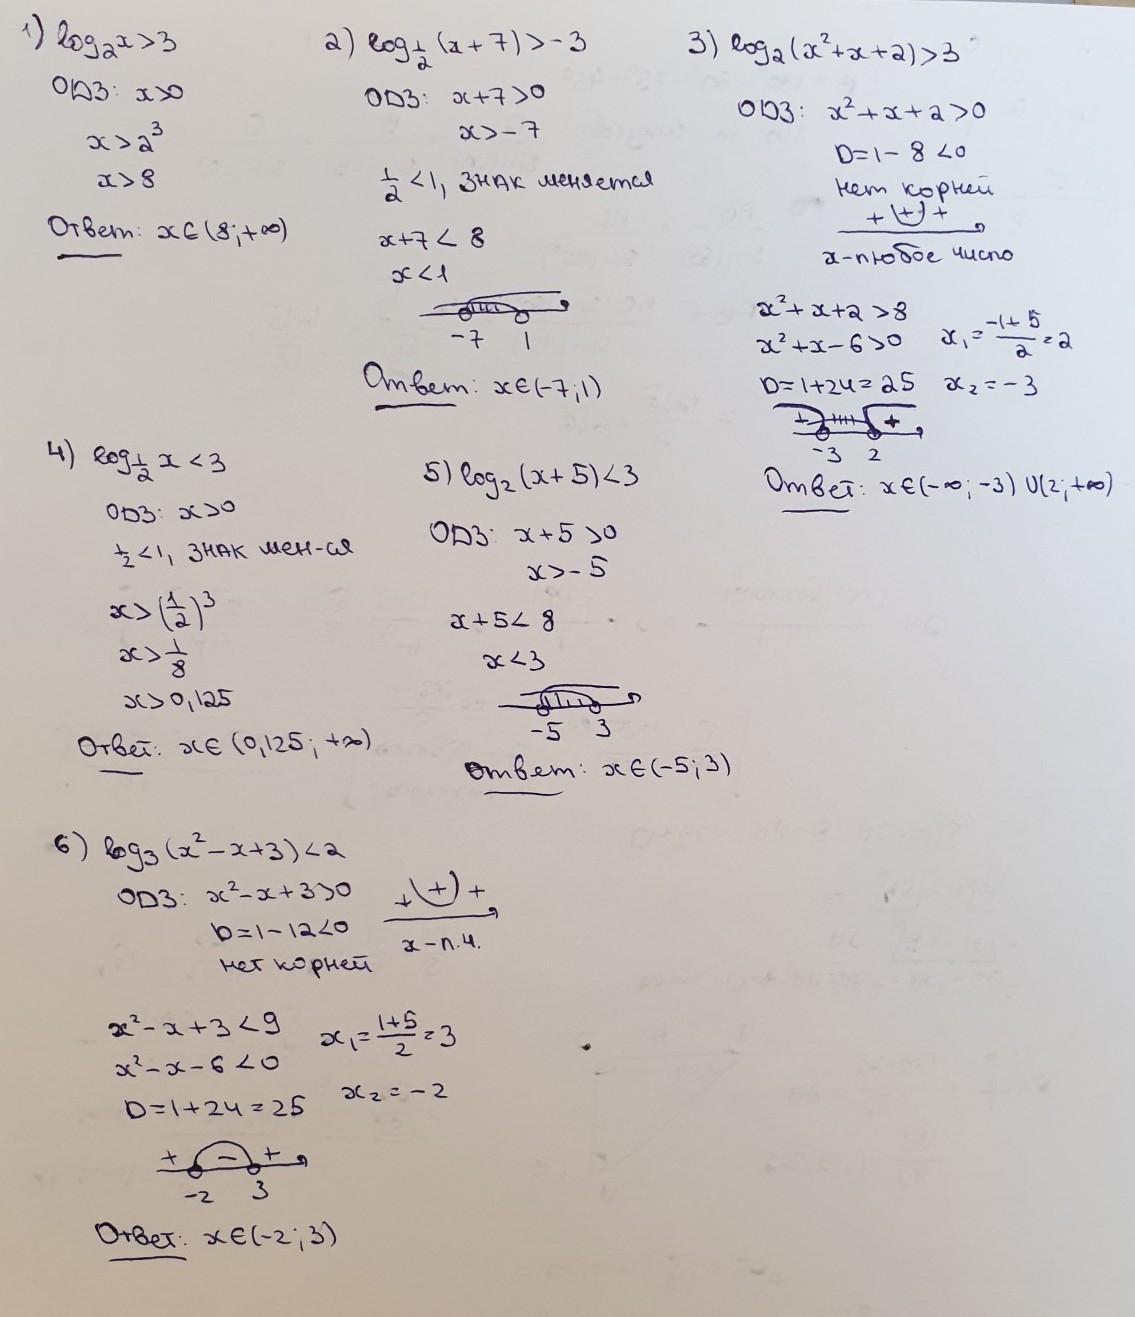 1) log₂x>3
ОДЗ: x>0
x>2³
x>8
Ответ: x∈(8;+∞)
2) log½(x+7)>-3
ОДЗ: x+7>0
x>-7
½<1, знак меняется
x+7<8
x<1
-7 1
Ответ: x∈(-7;1)
3) log₂(x²+x+2)>3
ОДЗ: x²+x+2>0
D=1-8<0
нет корней
+ (+) +
x-любое число
x²+x+2>8
x²+x-6>0
D=1+24=25
x₁=(-1+5)/2=2
x₂=-3
+ +
-3 2
Ответ: x∈(-∞;-3)∪(2;+∞)
4) log½x<3
ОДЗ: x>0
½<1, знак мен-ся
x>(1/2)³
x>1/8
x>0,125
Ответ: x∈(0,125;+∞)
5) log₂(x+5)<3
ОДЗ: x+5>0
x>-5
x+5<8
x<3
-5 3
Ответ: x∈(-5;3)
6) log₃(x²-x+3)<2
ОДЗ: x²-x+3>0
D=1-12<0
нет корней
+ (+) +
x-л.ч.
x²-x+3<9
x²-x-6<0
D=1+24=25
x₁=(1+5)/2=3
x₂=-2
+ - +
-2 3
Ответ: x∈(-2;3)